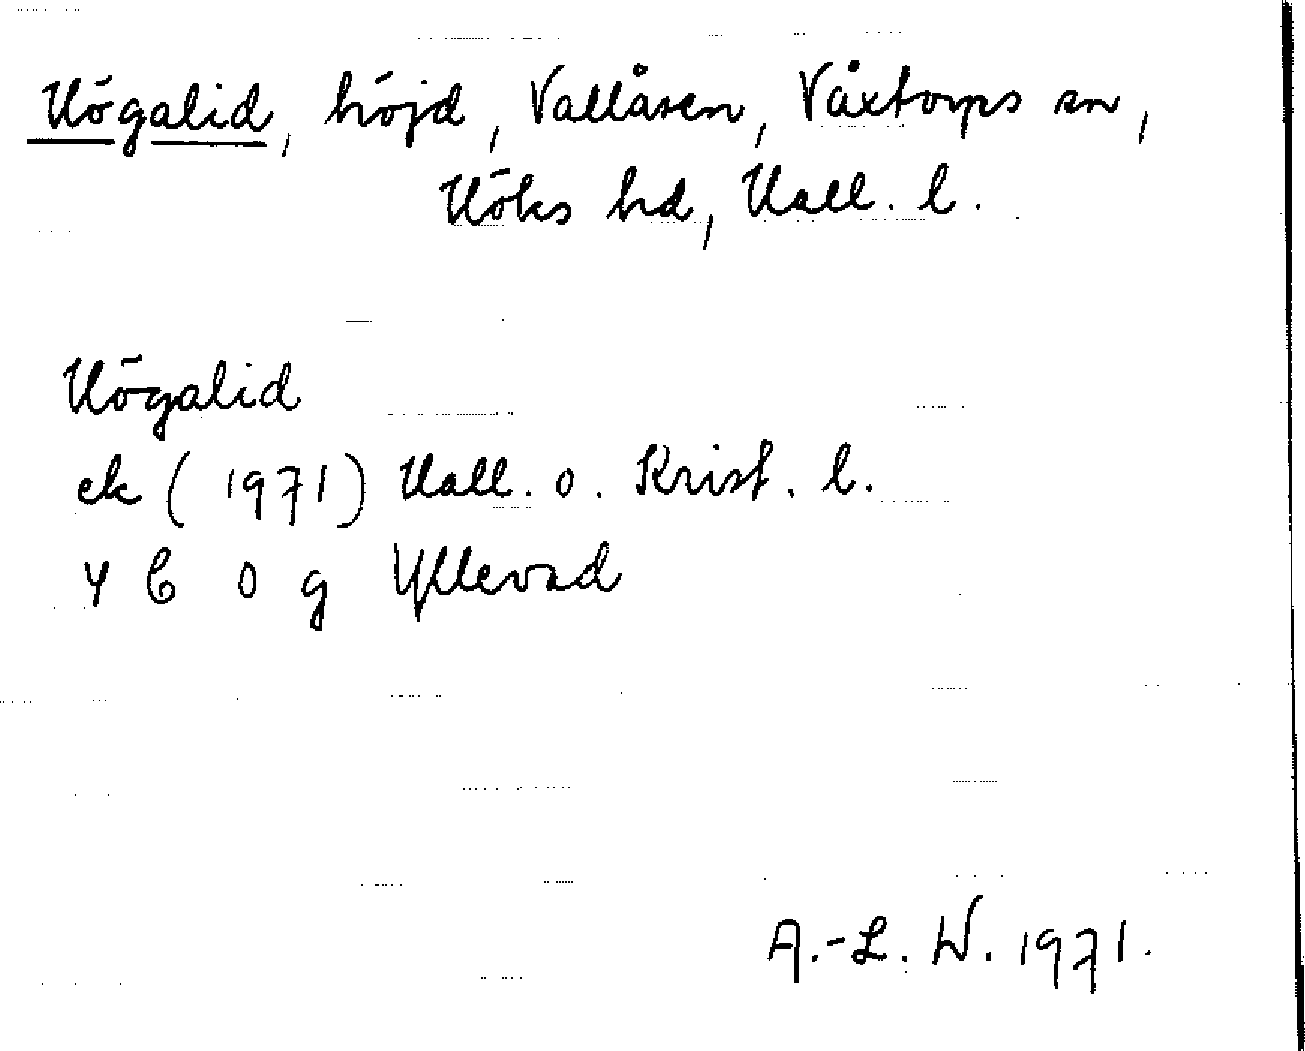 Högalid, höjd, Vallåsen, Våxtorps sn,
Höks hd, Hall. l.
Högalid
ek (1971) Hall. o. Krist. l.
4 C 0 g Yllevad
A.-L. W. 1971.